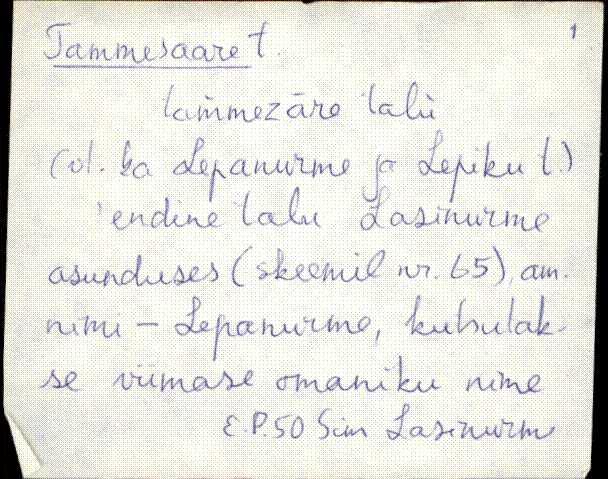 1
Tammesaare t.
tam̀mezāre talù
(vt. ka Lepanurme ja Lepiku t.)
'endine talu Lasinurme
asunduses (skeemil nr. 65), am.
nimi - Lepanurme, kutsutak-
se viimase omaniku nime
E.P. 50 Sim Lasinurm